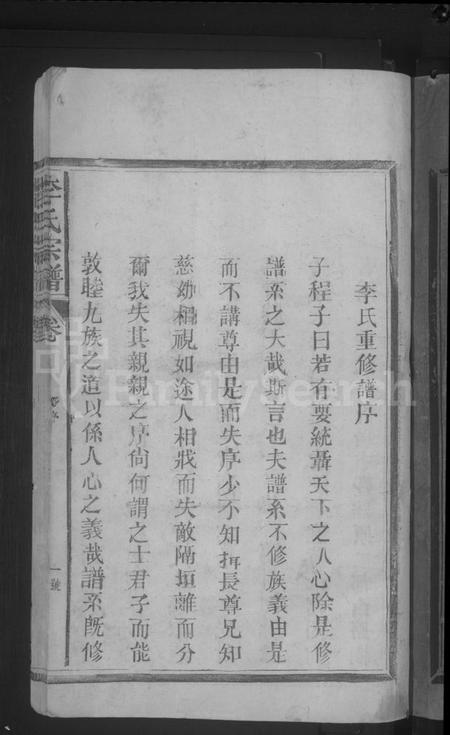 李氏重修譜序
子程子曰若有要統聶天下之人心除是修
譜系之大哉斯言也夫譜系不修族義由是
而不講尊由是而失序少不知揖長尊兄知
慈幼相視如途人相戕而失敵隔垣離而分
爾我失其親親之序尙何謂之士君子而能
敦睦九族之道以係人心之義哉譜系旣修
李氏宗譜
卷
序
一號
FamilySearch